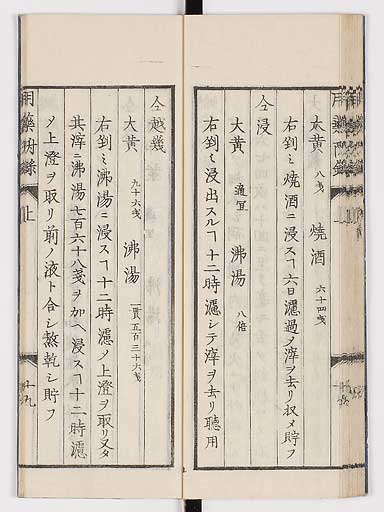 大黄 八戔 焼酒 六十四戔
右剉ミ焼酒ニ浸スヿ六日濾過ノ滓ヲ去リ収メ貯フ
仝浸
大黄 適宜 沸湯 八倍
右剉ミ浸出スルヿ十二時濾シテ滓ヲ去リ聴用
仝越幾
大黄 九十六戔 沸湯 一貫五百三十六戔
右剉ミ沸湯ニ浸スヿ十二時濾ノ上澄ヲ取リ又タ
其滓ニ沸湯七百六十八戔ヲ加ヘ浸スヿ十二時濾
ノ上澄ヲ取リ前ノ液ト合シ熬乾シ貯フ
用薬附録 上 十九